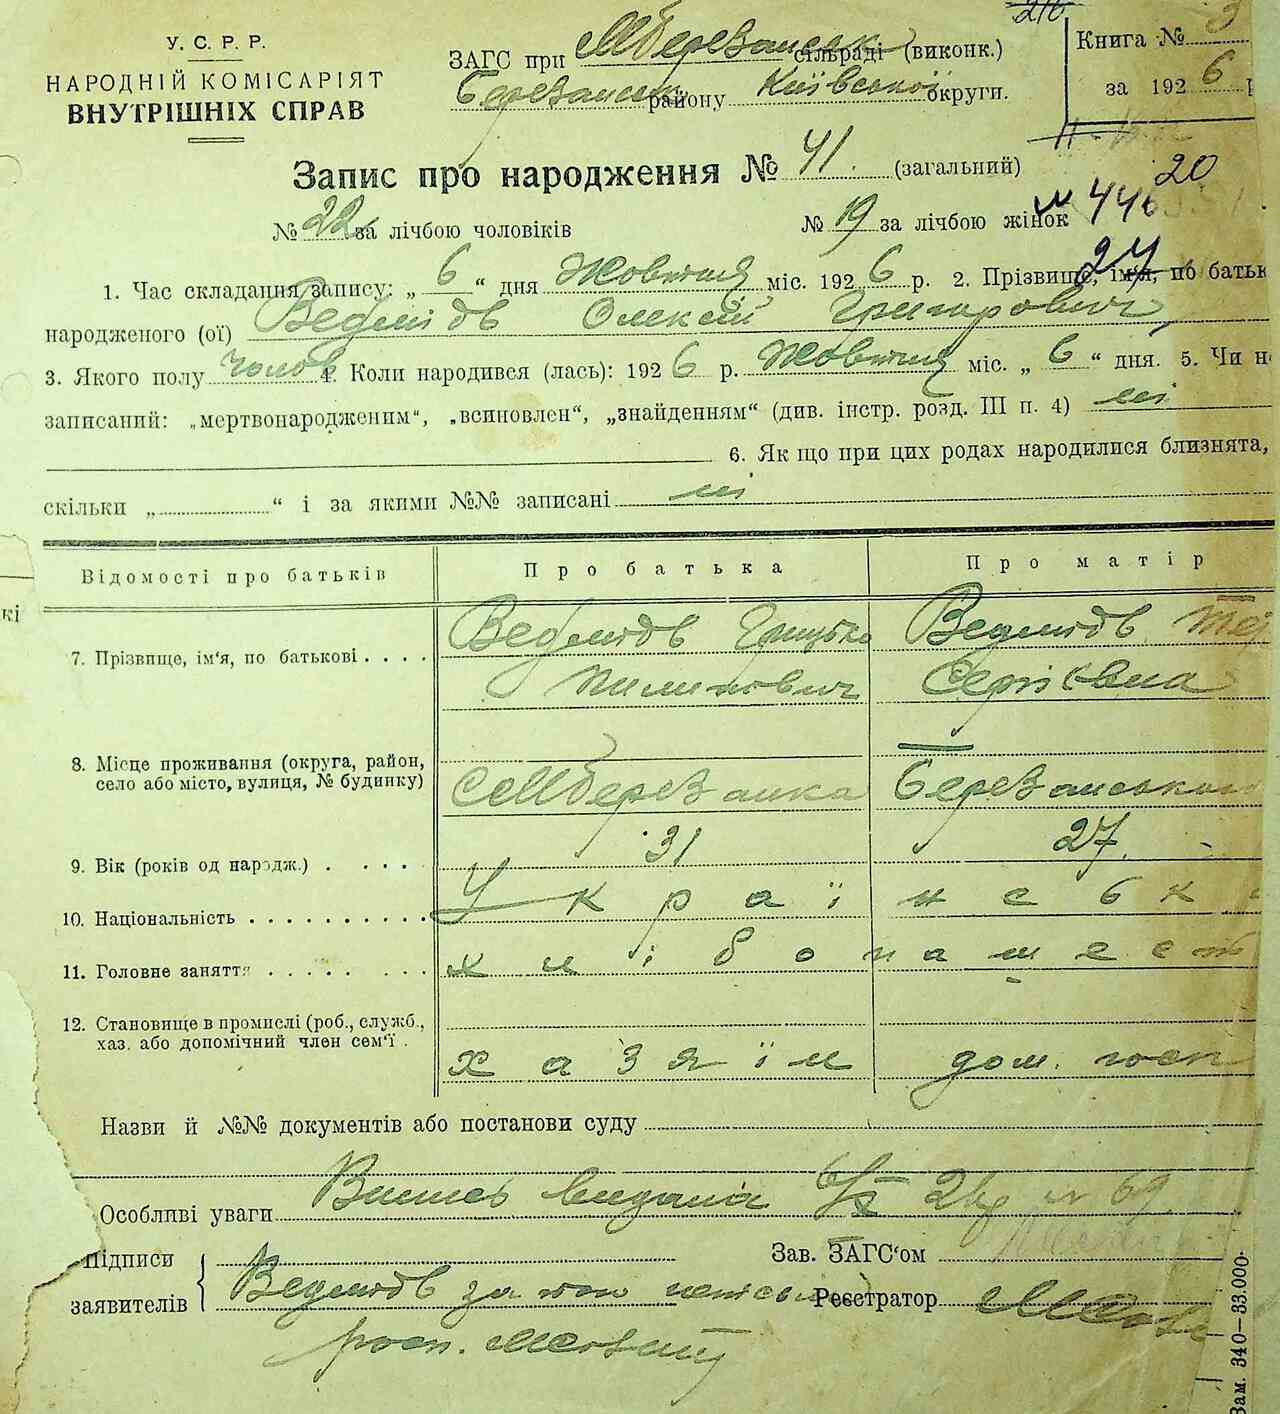 У. С. Р. Р.
НАРОДНІЙ КОМІСАРІЯТ
ВНУТРІШНІХ СПРАВ
216
ЗАГС при МБерезанськ сільраді (виконк.)
Березанськ району Київської округи.
Книга № 3
за 1926 р
Запис про народження № 41. (загальний)
20
№ 22 за лічбою чоловіків № 19 за лічбою жінок
№ 446
24
1. Час складання запису: „ 6 “ дня Жовтня міс. 1926 р. 2. Прізвище, ім'я, по батьк
народженого (ої) Ведмідь Олексій Григорович,
3. Якого полу чолов 4. Коли народився (лась): 1926 р. Жовтня міс. „ 6 “ дня. 5. Чи н
записаний: „мертвонародженим“, „всиновлен“, „знайденням“ (див. інстр. розд. III п. 4) ні
6. Як що при цих родах народилися близнята,
скільки „ “ і за якими №№ записані ні
Відомості про батьків Про батька Про матір
кі
7. Прізвище, ім‘я, по батькові . . . . Ведмідь Грицько Ведмідь
Пилипович Сергіївна
8. Місце проживання (округа, район,
село або місто, вулиця, № будинку) с МБерезанка Березанського
9. Вік (років од народж.) . . . . 31 27.
10. Національність . . . . . . . . . . Українськ
11. Головне заняття . . . . . . . хлібопашест
12. Становище в промислі (роб., служб.,
хаз. або допомічний член сем‘ї . хазяїн дом. госп
Назви й №№ документів або постанови суду
Особливі уваги Випись видана № 69
Підписи Зав. ЗАГС‘ом
заявителів Ведмідь за Реєстратор
росп.
Зам. 340—33.000.